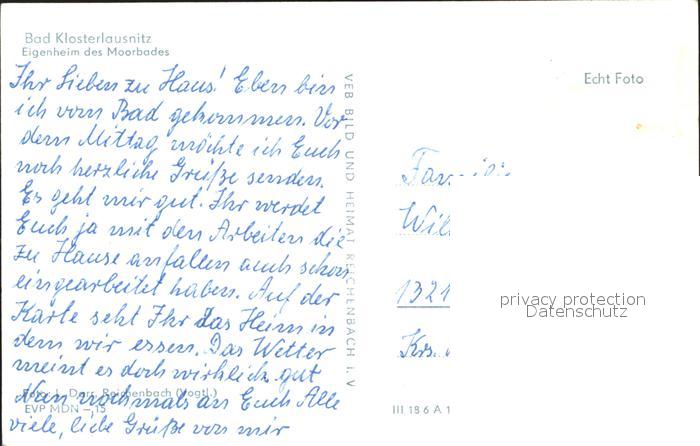 Bad Klosterlausnitz
Eigenheim des Moorbades
Ihr Lieben zu Haus! Eben bin
ich vom Bad gekommen. Vor
dem Mittag möchte ich Euch
noch herzliche Grüße senden.
Es geht mir gut. Ihr werdet
Euch ja mit den Arbeiten die
zu Hause anfallen auch schon
eingearbeitet haben. Auf der
Karte seht Ihr das Heim in
dem wir essen. Das Wetter
meint es doch wirklich gut
Nun nochmals an Euch Alle
viele, liebe Grüße von mir
Reichenbach (Vogtl.)
EVP MDN –,15
VEB BILD UND HEIMAT REICHENBACH I. V
Echt Foto
Fam
Wil
1321
Krs.
III 18 6 A 1
privacy protection
Datenschutz